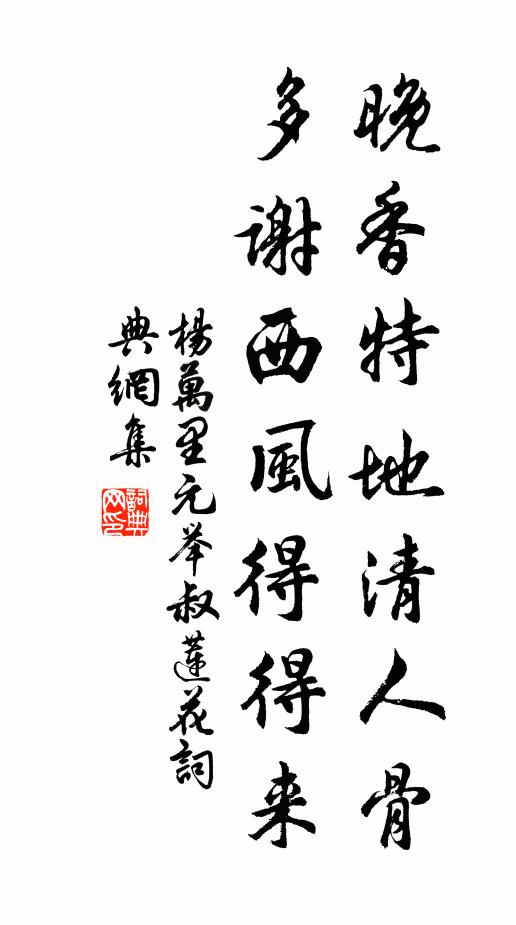 晚香特地清人骨
多谢西風得得来
楊萬里元举叔蓮花詞
典網集
詞典網印